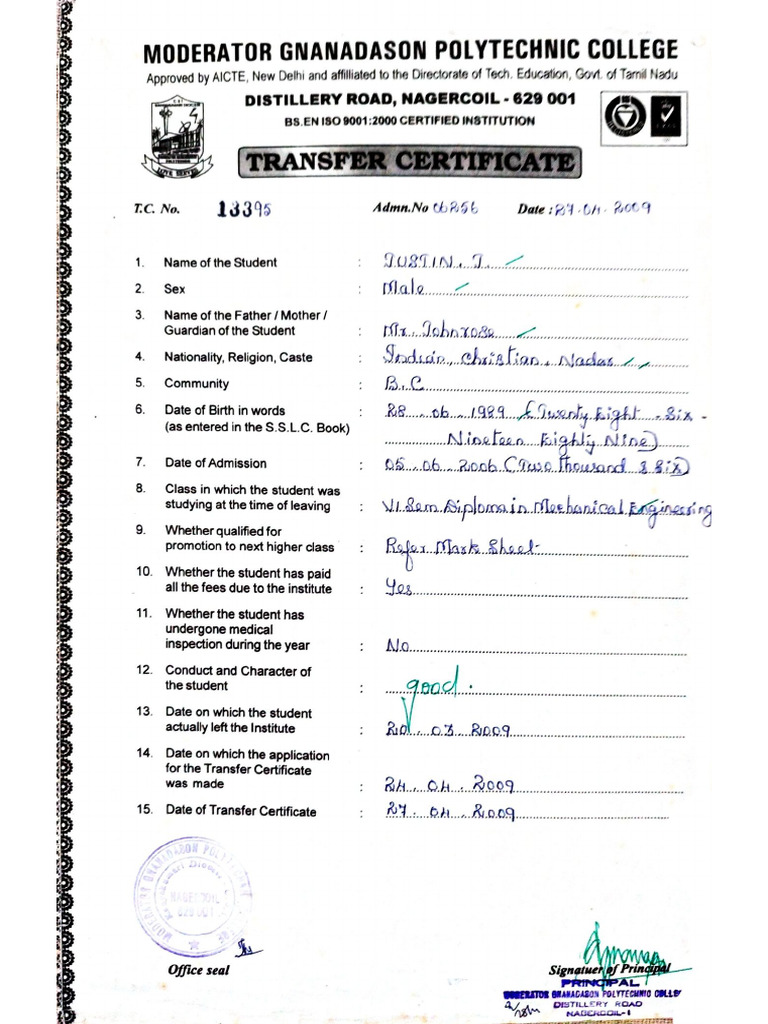 MODERATOR GNANADASON POLYTECHNIC COLLEGE
Approved by AICTE, New Delhi and affiliated to the Directorate of Tech. Education, Govt. of Tamil Nadu
DISTILLERY ROAD, NAGERCOIL - 629 001
BS.EN ISO 9001:2000 CERTIFIED INSTITUTION
TRANSFER CERTIFICATE
T.C. No. 13395 Admn.No 06256 Date : 27.04.2009
1. Name of the Student : JUSTIN. J.
2. Sex : Male
3. Name of the Father / Mother /
Guardian of the Student : Mr. Johnrose
4. Nationality, Religion, Caste : Indian, Christian, Nadar
5. Community : B.C
6. Date of Birth in words : 28.06.1989 (Twenty Eight - Six -
(as entered in the S.S.L.C. Book) Nineteen Eighty Nine)
7. Date of Admission : 05.06.2006 (Two thousand & Six)
8. Class in which the student was
studying at the time of leaving : VI Sem Diploma in Mechanical Engineering
9. Whether qualified for
promotion to next higher class : Refer Mark Sheet
10. Whether the student has paid
all the fees due to the institute : Yes
11. Whether the student has
undergone medical
inspection during the year : No
12. Conduct and Character of
the student : good.
13. Date on which the student
actually left the Institute : 20.03.2009
14. Date on which the application
for the Transfer Certificate
was made : 24.04.2009
15. Date of Transfer Certificate : 27.04.2009
MODERATOR GNANADASON POLYTECHNIC
NAGERCOIL
629 001
Office seal Signatuer of Principal
PRINCIPAL
MODERATOR GNANADASON POLYTECHNIC COLLE
DISTILLERY ROAD
NAGERCOIL-1